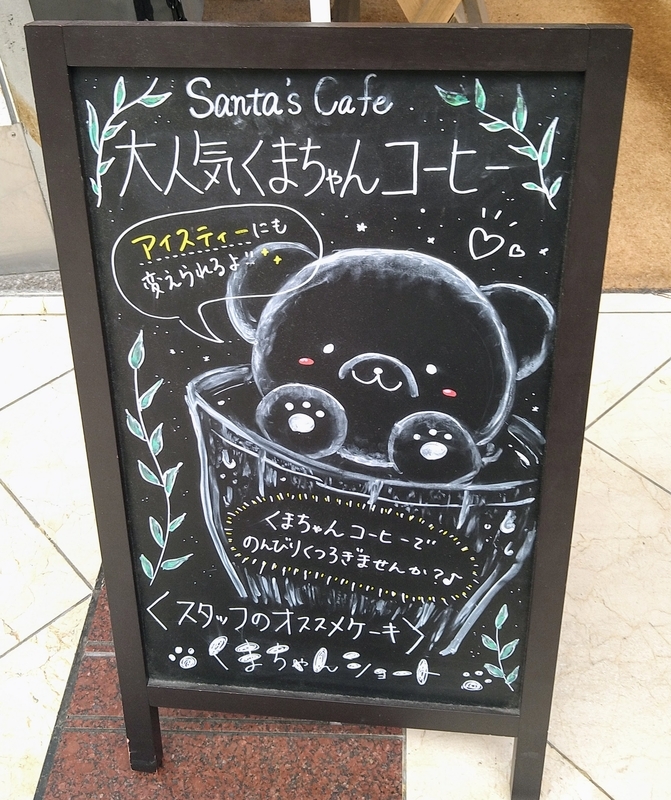 Santa's Cafe
大人気くまちゃんコーヒー
アイスティーにも
変えられるよ!!
くまちゃんコーヒーで
のんびりくつろぎませんか?♪
〈スタッフのオススメケーキ〉
くまちゃんショート